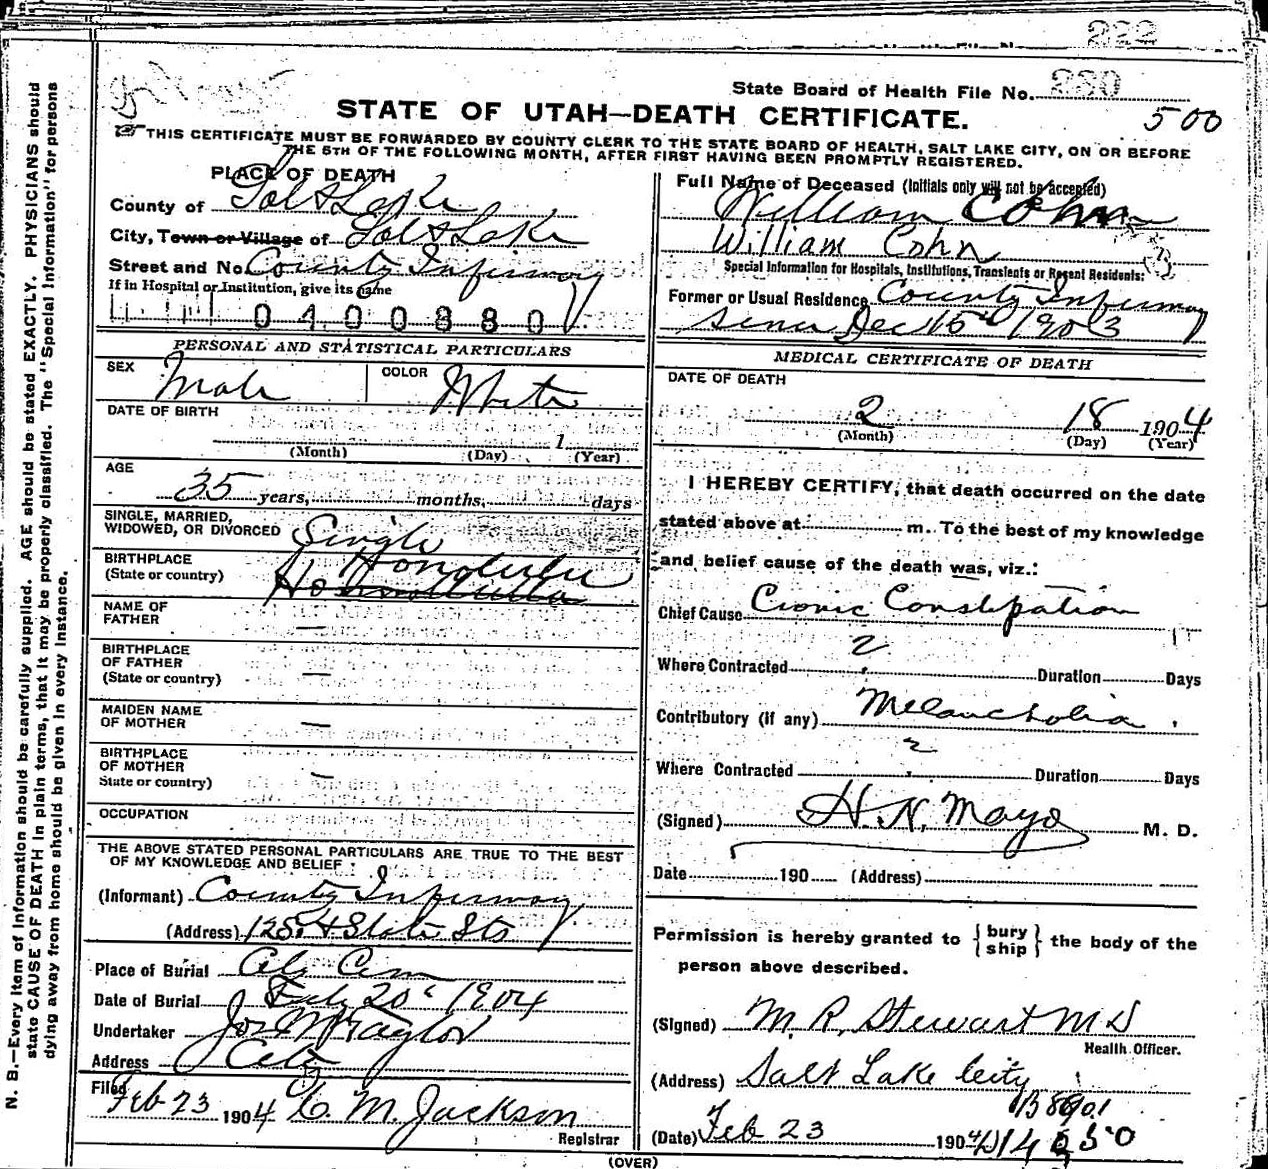 222
State Board of Health File No. 280
STATE OF UTAH—DEATH CERTIFICATE.
500
THIS CERTIFICATE MUST BE FORWARDED BY COUNTY CLERK TO THE STATE BOARD OF HEALTH, SALT LAKE CITY, ON OR BEFORE
THE 5TH OF THE FOLLOWING MONTH, AFTER FIRST HAVING BEEN PROMPTLY REGISTERED.
PLACE OF DEATH
County of Salt Lake
City, Town or Village of Salt Lake
Street and No. County Infirmary
If in Hospital or Institution, give its name
0400880
Full Name of Deceased (Initials only will not be accepted)
William Cohn
William Cohn
Special Information for Hospitals, Institutions, Transients or Recent Residents:
Former or Usual Residence County Infirmary
since Dec 15th 1903
PERSONAL AND STATISTICAL PARTICULARS
SEX Male COLOR White
DATE OF BIRTH
1
(Month) (Day) (Year)
AGE
35 years, months, days
SINGLE, MARRIED,
WIDOWED, OR DIVORCED Single
BIRTHPLACE Honolulu
(State or country)
NAME OF
FATHER —
BIRTHPLACE
OF FATHER —
(State or country)
MAIDEN NAME
OF MOTHER —
BIRTHPLACE
OF MOTHER —
State or country)
OCCUPATION
THE ABOVE STATED PERSONAL PARTICULARS ARE TRUE TO THE BEST
OF MY KNOWLEDGE AND BELIEF
(Informant) County Infirmary
(Address) 12 So. & State Sts
Place of Burial City Cem
Date of Burial Feby 20th 1904
Undertaker Jos Wm Taylor
Address City
Filed Feb 23 1904 C. M. Jackson
Registrar
MEDICAL CERTIFICATE OF DEATH
DATE OF DEATH
2 18 1904
(Month) (Day) (Year)
I HEREBY CERTIFY, that death occurred on the date
stated above at m. To the best of my knowledge
and belief cause of the death was, viz.:
Chief Cause Cronic Constipation
Where Contracted ? Duration Days
Contributory (if any) Melancholia
Where Contracted ? Duration Days
(Signed) H. N. Mayo M. D.
Date 190 (Address)
Permission is hereby granted to { bury
ship } the body of the
person above described.
(Signed) M. R. Stewart M D
Health Officer.
(Address) Salt Lake City
(Date) Feb 23 1904
(OVER)
N. B.—Every item of information should be carefully supplied. AGE should be stated EXACTLY. PHYSICIANS should
state CAUSE OF DEATH in plain terms, that it may be properly classified. The "Special Information" for persons
dying away from home should be given in every instance.